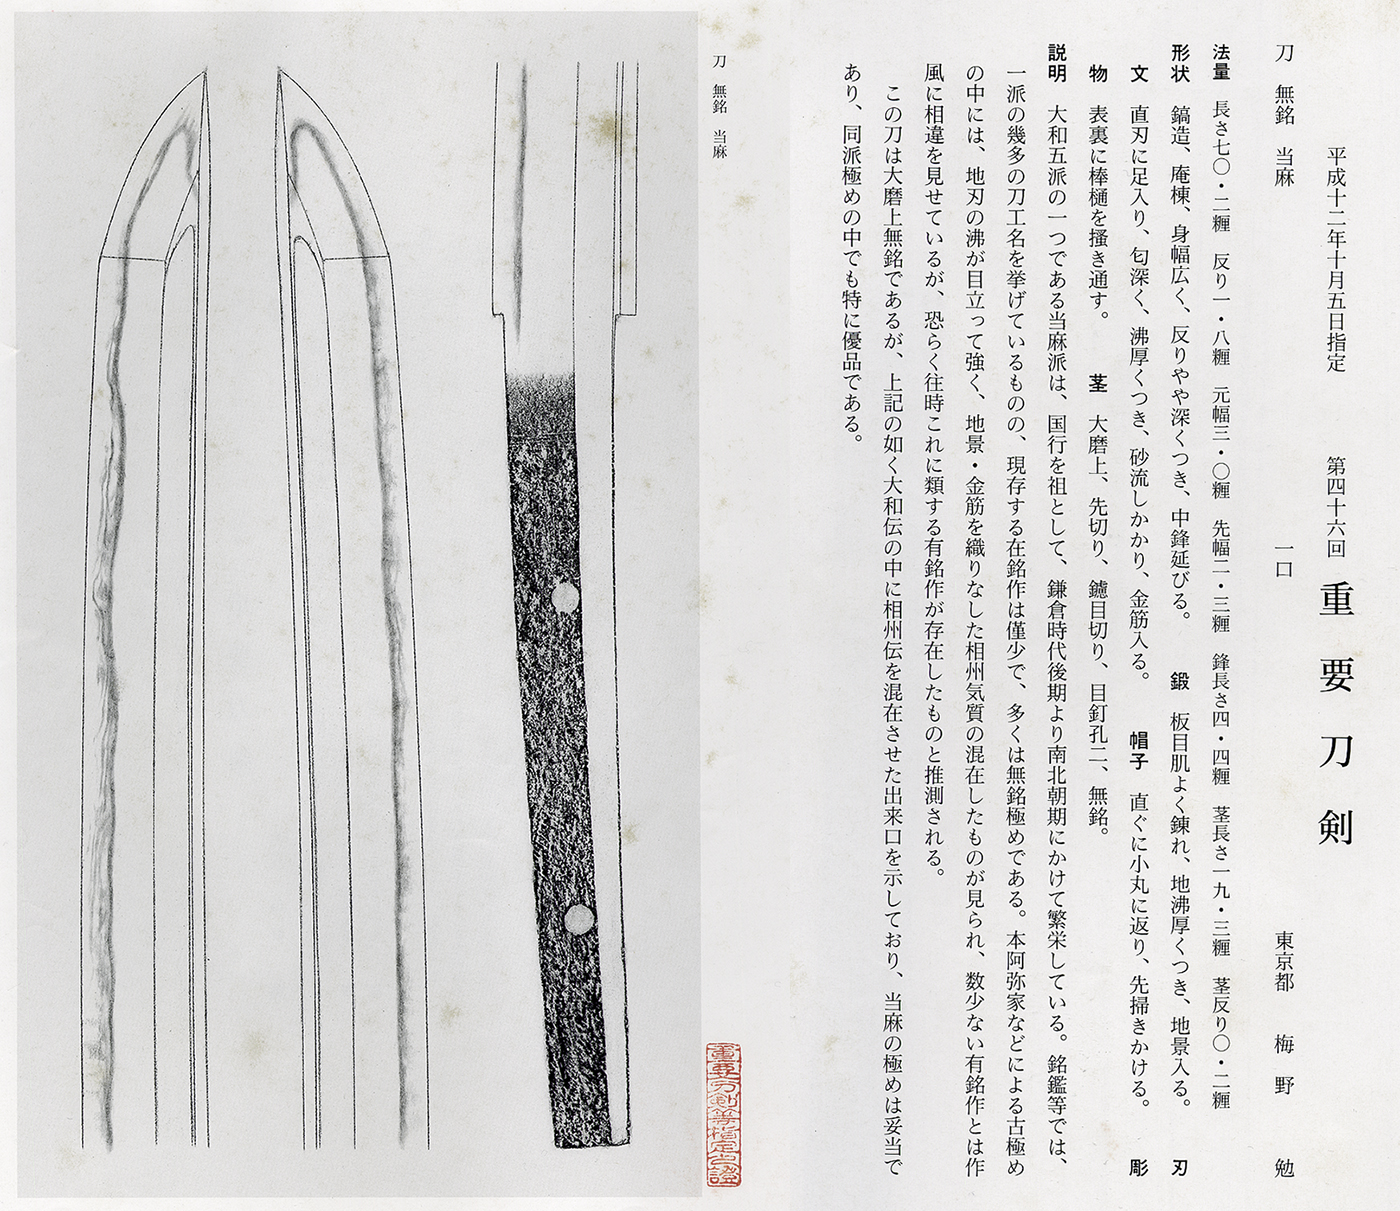 平成十二年十月五日指定　第四十六回　重要刀剣
刀　無銘　当麻　一口　東京都　梅野　勉
法量　長さ七〇・二糎　反り一・八糎　元幅三・〇糎　先幅二・三糎　鋒長さ四・四糎　茎長さ一九・三糎　茎反り〇・二糎
形状　鎬造、庵棟、身幅広く、反りやや深くつき、中鋒延びる。　鍛　板目肌よく錬れ、地沸厚くつき、地景入る。　刃
文　直刃に足入り、匂深く、沸厚くつき、砂流しかかり、金筋入る。　帽子　直ぐに小丸に返り、先掃きかける。　彫
物　表裏に棒樋を掻き通す。　茎　大磨上、先切り、鑢目切り、目釘孔二、無銘。
説明　大和五派の一つである当麻派は、国行を祖として、鎌倉時代後期より南北朝期にかけて繁栄している。銘鑑等では、
一派の幾多の刀工名を挙げているものの、現存する在銘作は僅少で、多くは無銘極めである。本阿弥家などによる古極め
の中には、地刃の沸が目立って強く、地景・金筋を織りなした相州気質の混在したものが見られ、数少ない有銘作とは作
風に相違を見せているが、恐らく往時これに類する有銘作が存在したものと推測される。
この刀は大磨上無銘であるが、上記の如く大和伝の中に相州伝を混在させた出来口を示しており、当麻の極めは妥当で
あり、同派極めの中でも特に優品である。
刀　無銘　当麻
重要刀剣等指定台證